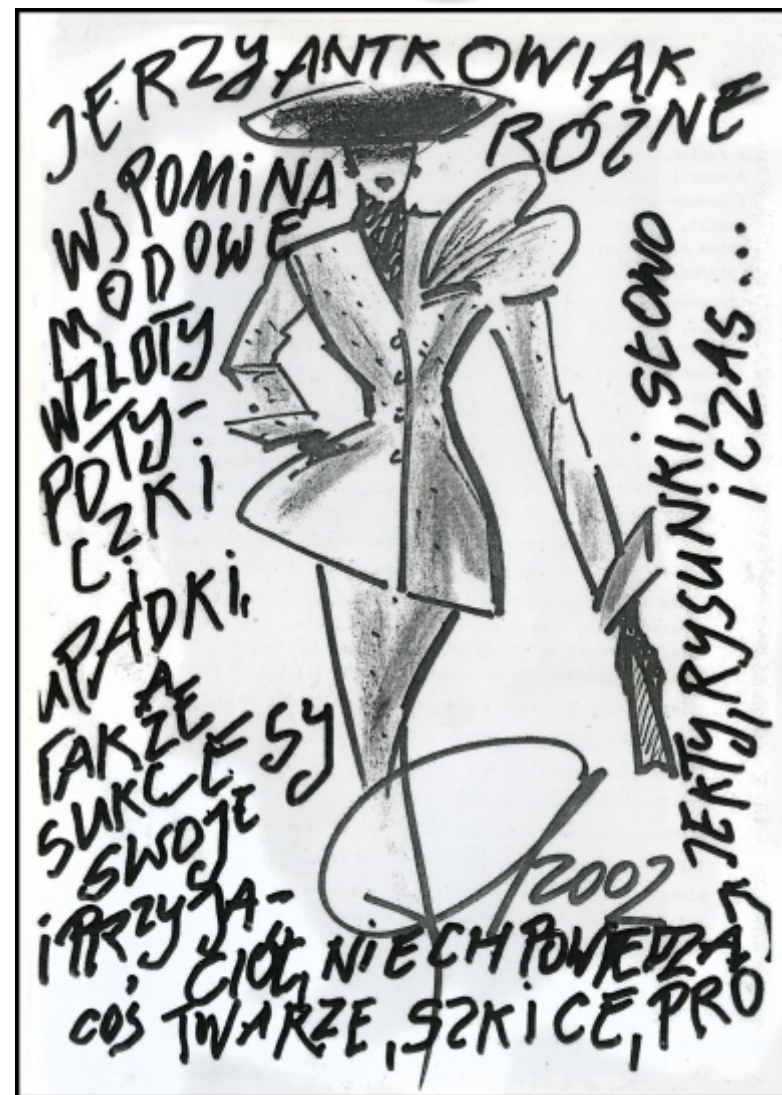 JERZY ANTKOWIAK
WSPOMINA
RÓŻNE
MODOWE
WZLOTY
POTY-
CZKI
i
UPADKI,
A
TAKŻE
SUKCESY
SWOJE
i PRZYJA-
CIÓŁ, NIECH POWIEDZĄ
COŚ TWARZE, SZKICE, PRO
JEKTY, RYSUNKI, SŁOWO
i CZAS...
2002